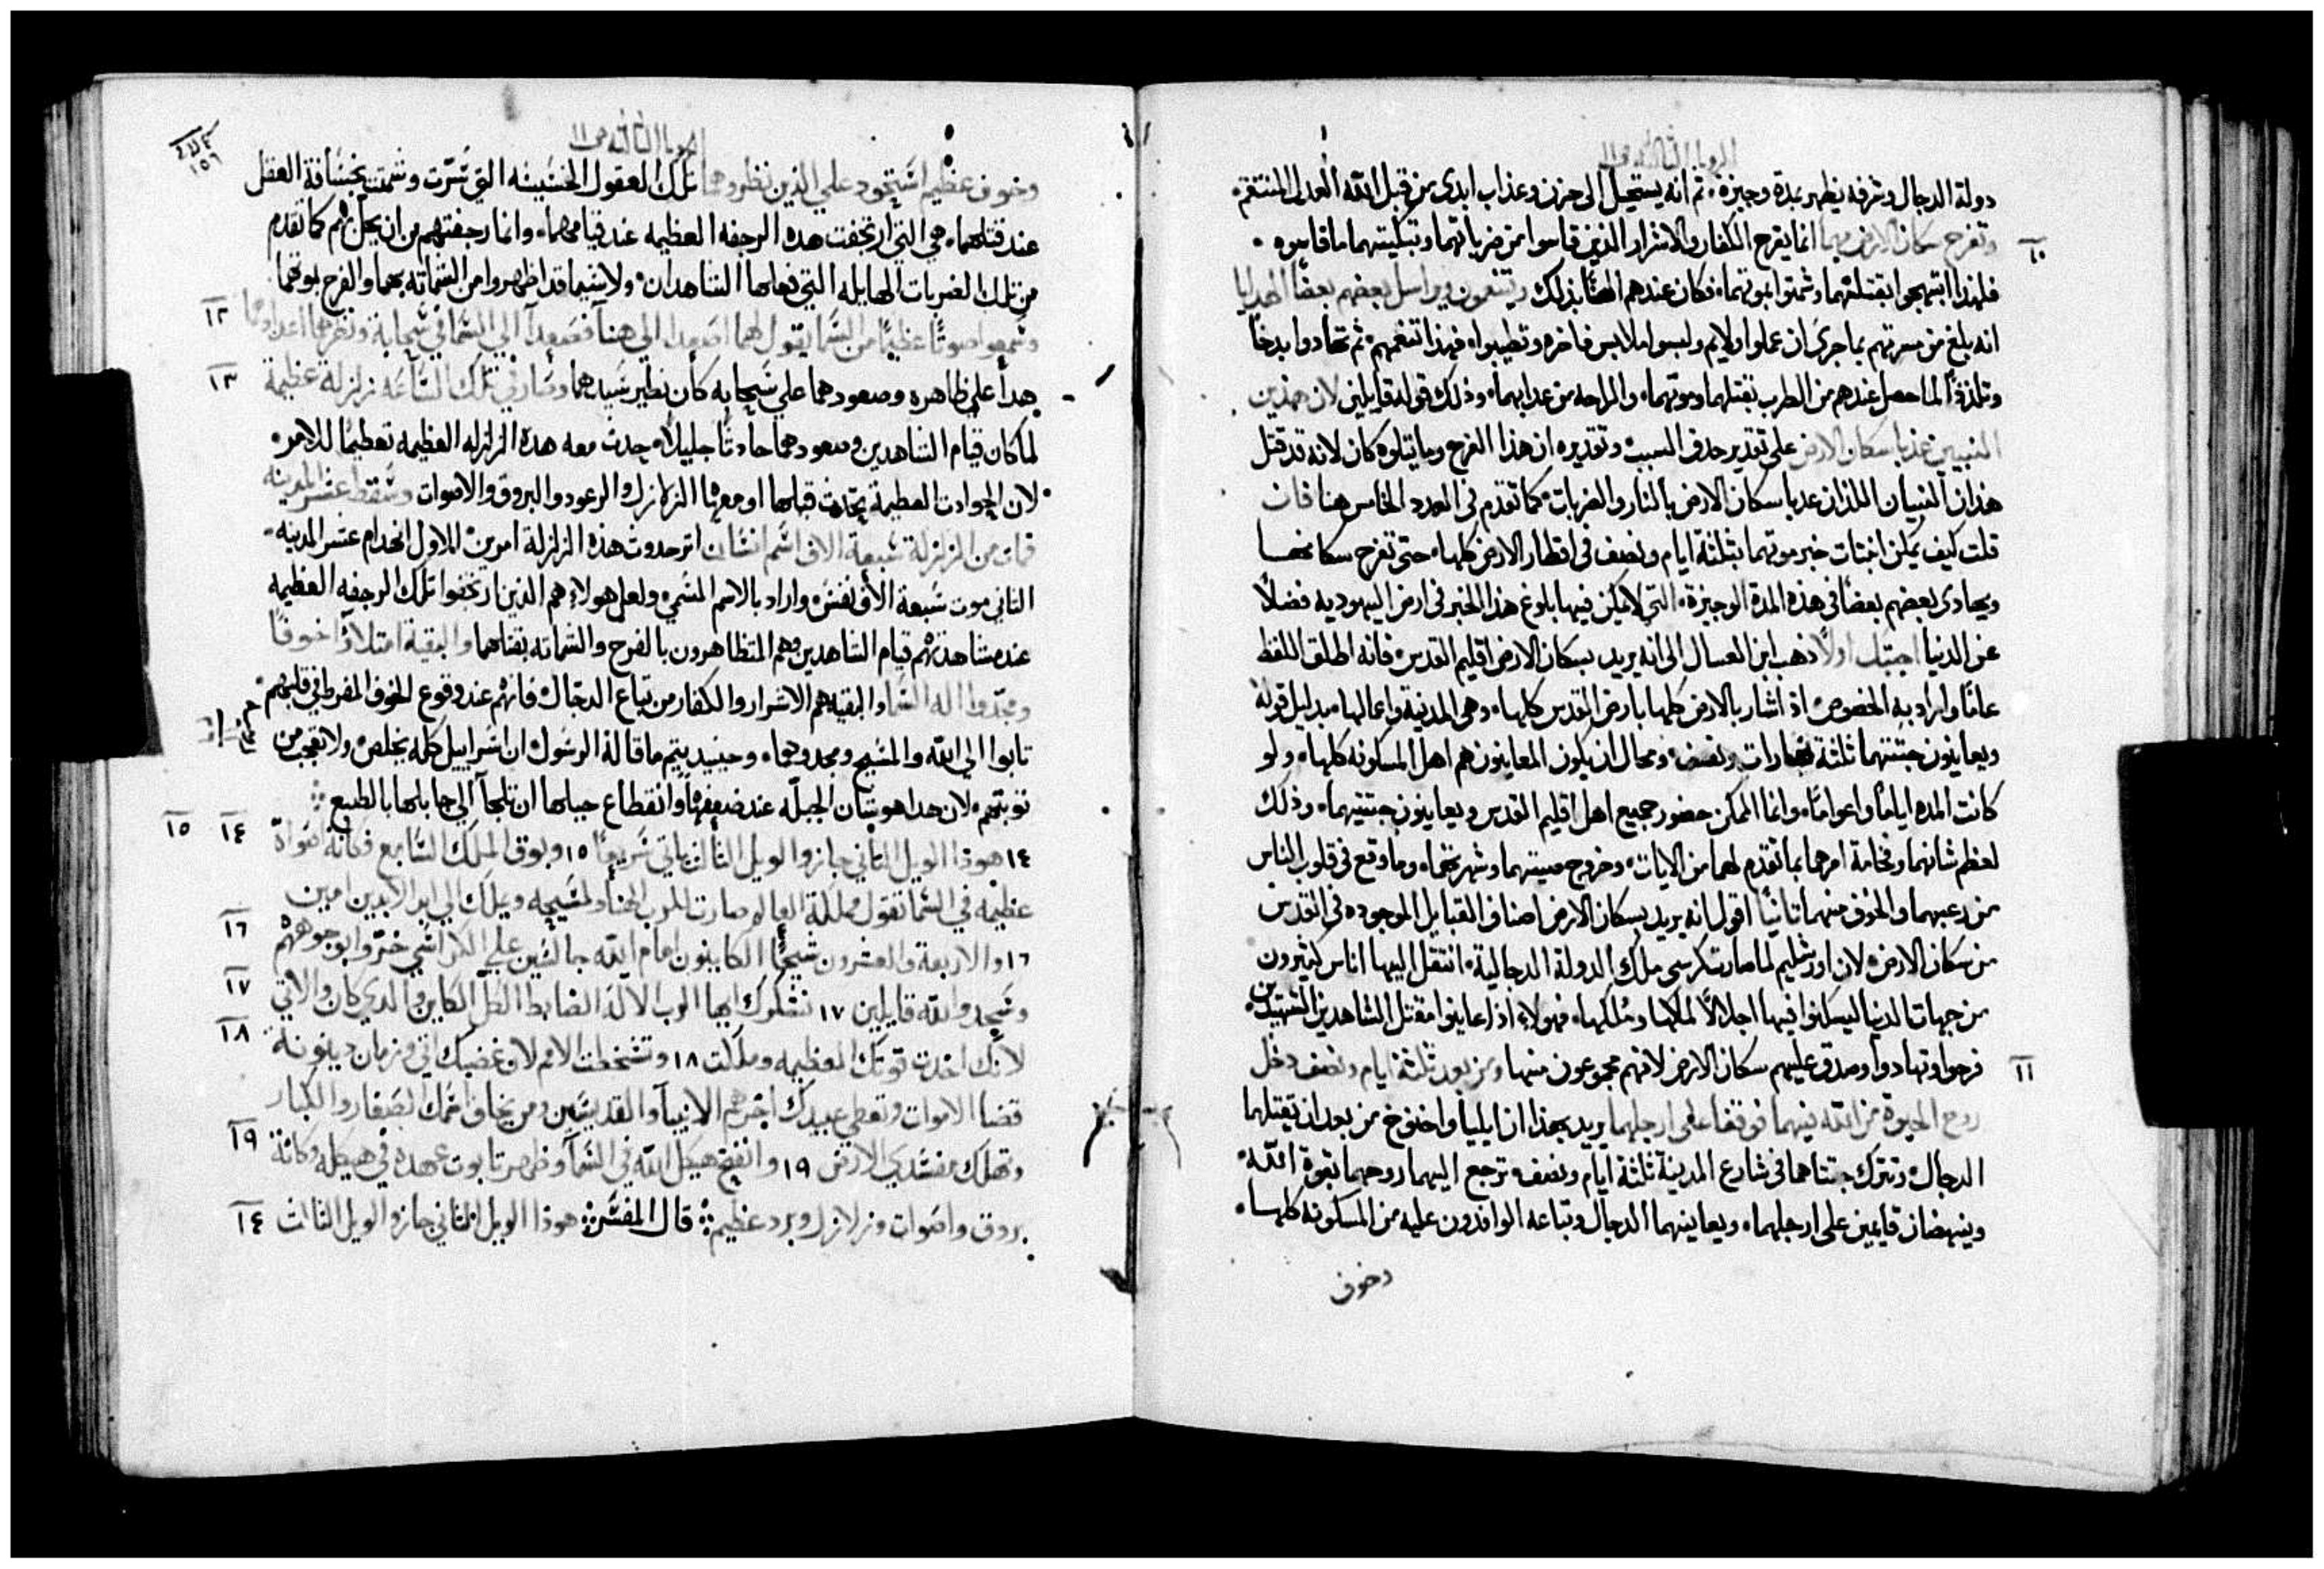 الرويا الثالثه ص ١١
دولة الدجال وشرفه يظهر بمدة وجيزة ثم انه يستحيل الى حزن وعذاب ابدى من قبل الله العدل المنتقم
١٠
وتفرح سكان الارض بهما انما يفرح الكفار والاشرار الذين قاسوا من ضرباتهما وتبكيتهما ما قاسوه
فلهذا ابتهجوا بقتلتهما وشمتوا بموتهما فكان عندهم بذلك ويتنعمون ويراسل بعضهم بعضًا الهدايا
انه بلغ من مسرتهم بما جرى ان عملوا ولايم ولبسوا ملابس فاخره وتطيبوا فهذا تنعمهم ثم تهادوا بدخًا
وتلذذًا لما حصل عندهم من الطرب بقتلهما وموتهما والراحه من عذابهما وذلك قوله قايلين لان هذين
النبيين عذبا سكان الارض على تقدير حذف السبب وتقديره ان هذا الفرح وما يتلوه كان لانه قد قتل
هذان النبيان اللذان عذبا سكان الارض بالنار والضربات كما تقدم فى العدد الخامس هنا فان
قلت كيف يمكن اثبات خبر موتهما بثلثة ايام ونصف فى اقطار الارض كلها حتى تفرح سكانها
ويهادى بعضهم بعضًا فى هذه المدة الوجيزة التى لا يمكن فيها بلوغ هذا الخبر فى ارض اليهودية فضلًا
عن الدنيا اجبتك اولًا ذهب ابن العسال الى انه يريد بسكان الارض اقليم القدس فانه اطلق اللفظ
عامًا واراد به الخصوص اذ اشار بالارض كلها بارض القدس كلها وهى المدينة واعمالها بدليل قوله
ويعاينون جثتهما ثلثة نهارات ونصف ومحال ان يكون المعاينون هم اهل المسكونه كلها ولو
كانت المده ايامًا واعوامًا وانما الممكن حضور جميع اهل اقليم القدس ويعاينون جثتيهما وذلك
لعظم شانهما وفخامة امرهما بما تقدم لهما من الايات وخروج صيتهما وشهرتهما وما وقع فى قلوب الناس
من رعبهما والخوف منهما ثانيًا اقول انه يريد بسكان الارض اصناف القبايل الموجوده فى القدس
من سكان الارض لان اورشليم لما صارت كرسي ملك الدولة الدجالية انتقل اليها اناس كثيرون
من جهات الدنيا ليسكنوا فيها اجلالًا لملكها ومُلكها فهولاء اذ عاينوا مقتل الشاهدين الشهيدين
فرحوا وتهادوا وصدق عليهم سكان الارض لانهم مجموعون منها ومن بعد ثلثة ايام ونصف دخل
١١
روح الحيوة من الله فيهما فوقفا على ارجلهما يريد بهذا ان ايليا واخنوخ من بعد ان يقتلهما
الدجال وتترك جثتاهما فى شارع المدينة ثلثة ايام ونصف ترجع اليهما روحهما بقوة الله
وينهضان قايمين على ارجلهما ويعاينهما الدجال وتباعه الوافدون عليه من المسكونه كلها
وخوف
الرويا الثالثه ص ١١
١٥٦
وخوف عظيم استحود علي الذين نظروهما تلك العقول الخسيسه التي سرت وشمتت بخسافة العقل
عند قتلهما هي التي ارتجفت هده الرجفه العظيمه عند قيامهما وانما رجفتهم من ان يحل بهم كما تقدم
من تلك الضربات الهايله التي فعلها الشاهدان ولاسيما قد اظهروا من الشماته بهما والفرح بموتهما
وسمعوا صوتًا عظيمًا من السما يقول لهما اصعدا الى هنا فصعدا الي السما في سحابة ونظرهما اعداوهما
١٢
هدا على ظاهره وصعودهما علي سحابه كان نظير سيدهما وصار في تلك الساعه زلزلة عظيمة
١٣
لما كان قيام الشاهدين وصعودهما حادثًا جليلًا حدث معه هده الزلزله العظيمه تعظيمًا للامر
لان الحوادث العظيمة يحدث قبلها او معها الزلازل والرعود والبروق والاصوات وسقط عشر المدينه
فمات من الزلزلة سبعة الاف اسم انسان اثر حدوث هذه الزلزلة امرين الاول انهدام عشر المدينه
الثاني موت سبعة الاف نفس واراد بالاسم المسمي ولعل هولاء هم الذين ارتجفوا تلك الرجفه العظيمه
عند مشاهدتهم قيام الشاهدين وهم المتظاهرون بالفرح والشماته بقتلهما والبقية امتلاوا خوفًا
ومجدوا اله السما والبقيه هم الاشرار والكفار من تباع الدجال فانهم عند وقوع الخوف المفرط في قلبهم
تابوا الي الله والمسيح ومجدوهما وحينيد يتم ما قاله الرسول ان اسراييل كله يخلص ولا تعجب من
توبتهم لان هدا هو شان الجبله عند ضعفها وانقطاع حبالها ان تلجآ الي جابلها بالطبع
١٤ هوذا الويل الثاني جاز والويل الثالث ياتي سريعًا ١٥ وبوق الملاك السابع فكانة اصواة
١٤ ١٥
عظيمه في السما تقول مملكة العالم صارت للرب الهنا ولمسيحه ويملك الي ابد الابدين امين
١٦ والاربعة والعشرون شيخًا الكاينون امام الله جالسين علي الكراسي خروا بوجوههم
١٦
وسجدوا لله قايلين ١٧ نشكرك ايها الرب الاله الضابط الكل الكاين والدي كان والاتي
١٧
لانك اخدت قوتك العظيمه وملكت ١٨ وتسخطت الامم لان غضبك اتي وزمان دينونة
١٨
قضا الاموات وتعطي عبيدك اجرهم الانبيا والقديسين ومن يخاف اسمك الصغار والكبار
وتهلك مفسدي الارض ١٩ وانفتح هيكل الله في السما وظهر تابوت عهده في هيكله وكانة
١٩
بروق واصوات وزلازل وبرد عظيم قال المفسر هوذا الويل الثاني جاز والويل الثالث
١٤